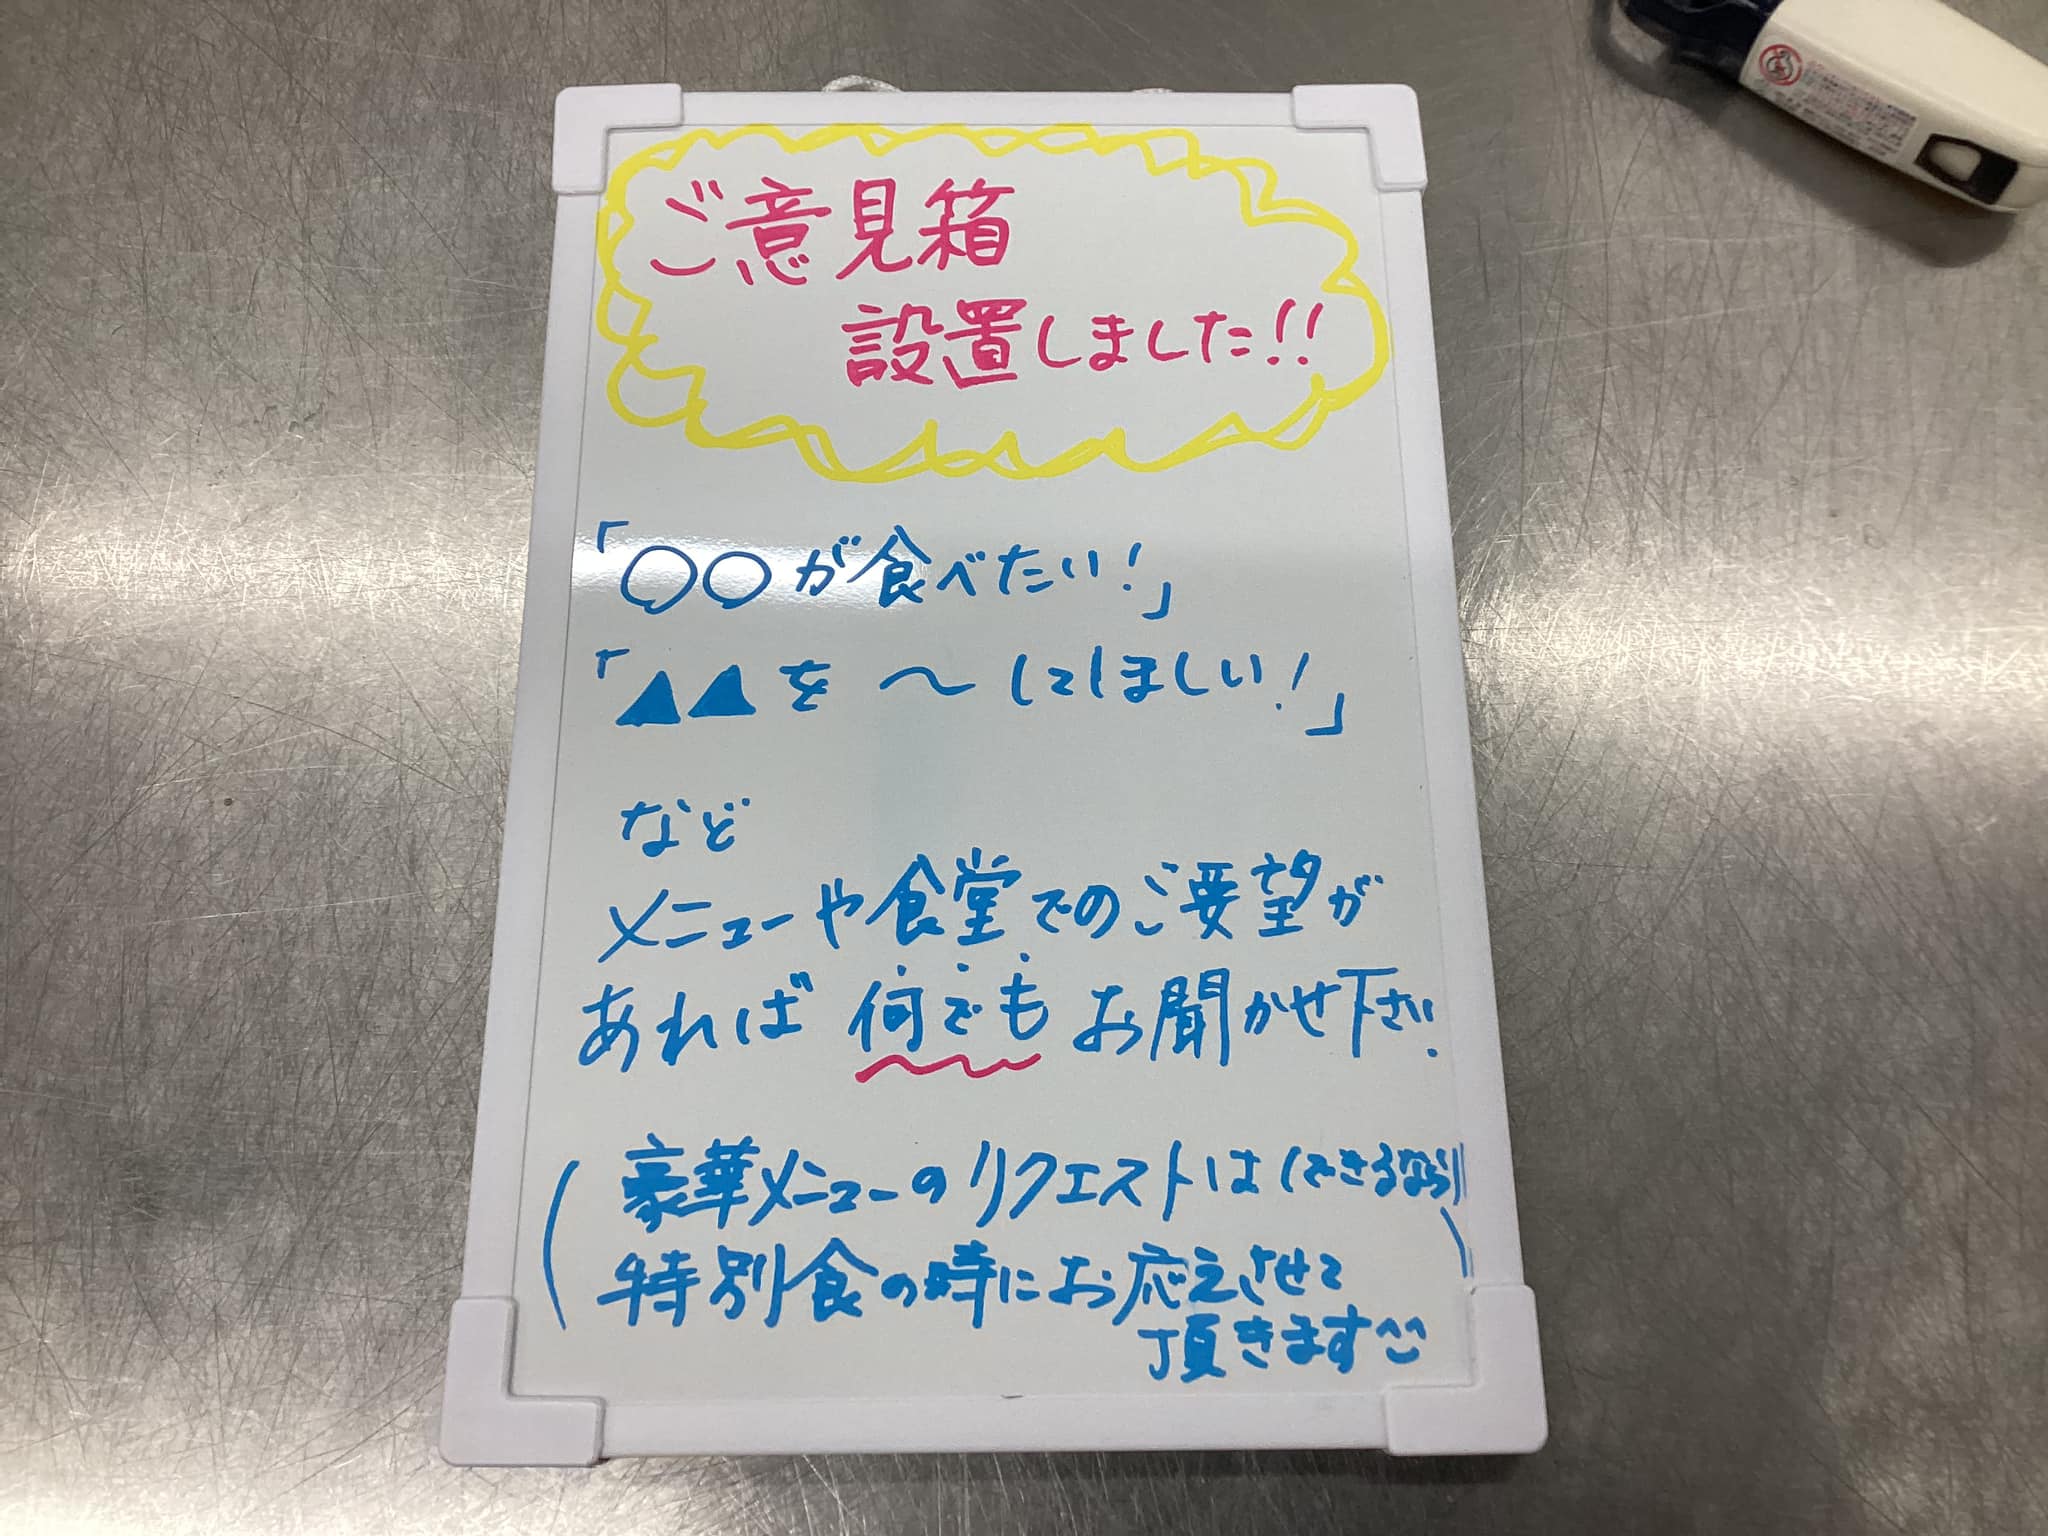 ご意見箱
設置しました!!
「〇〇が食べたい!」
「▲▲を 〜 してほしい!」
など
メニューや食堂でのご要望が
あれば 何でも お聞かせ下さい.
(豪華メニューのリクエストは(できるなら)
特別食の時にお応えさせて
頂きます^^)